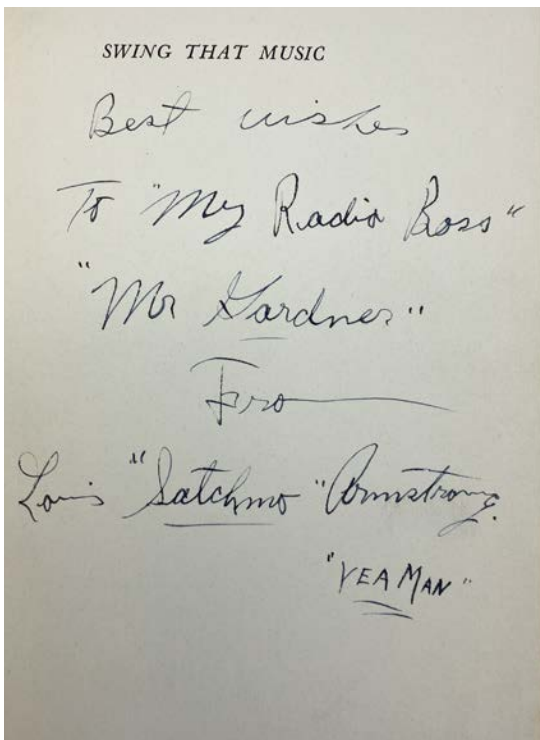 SWING THAT MUSIC
Best wishes
To "My Radio Boss"
"Mr Gardner"
From
Louis "Satchmo" Armstrong.
"YEA MAN"